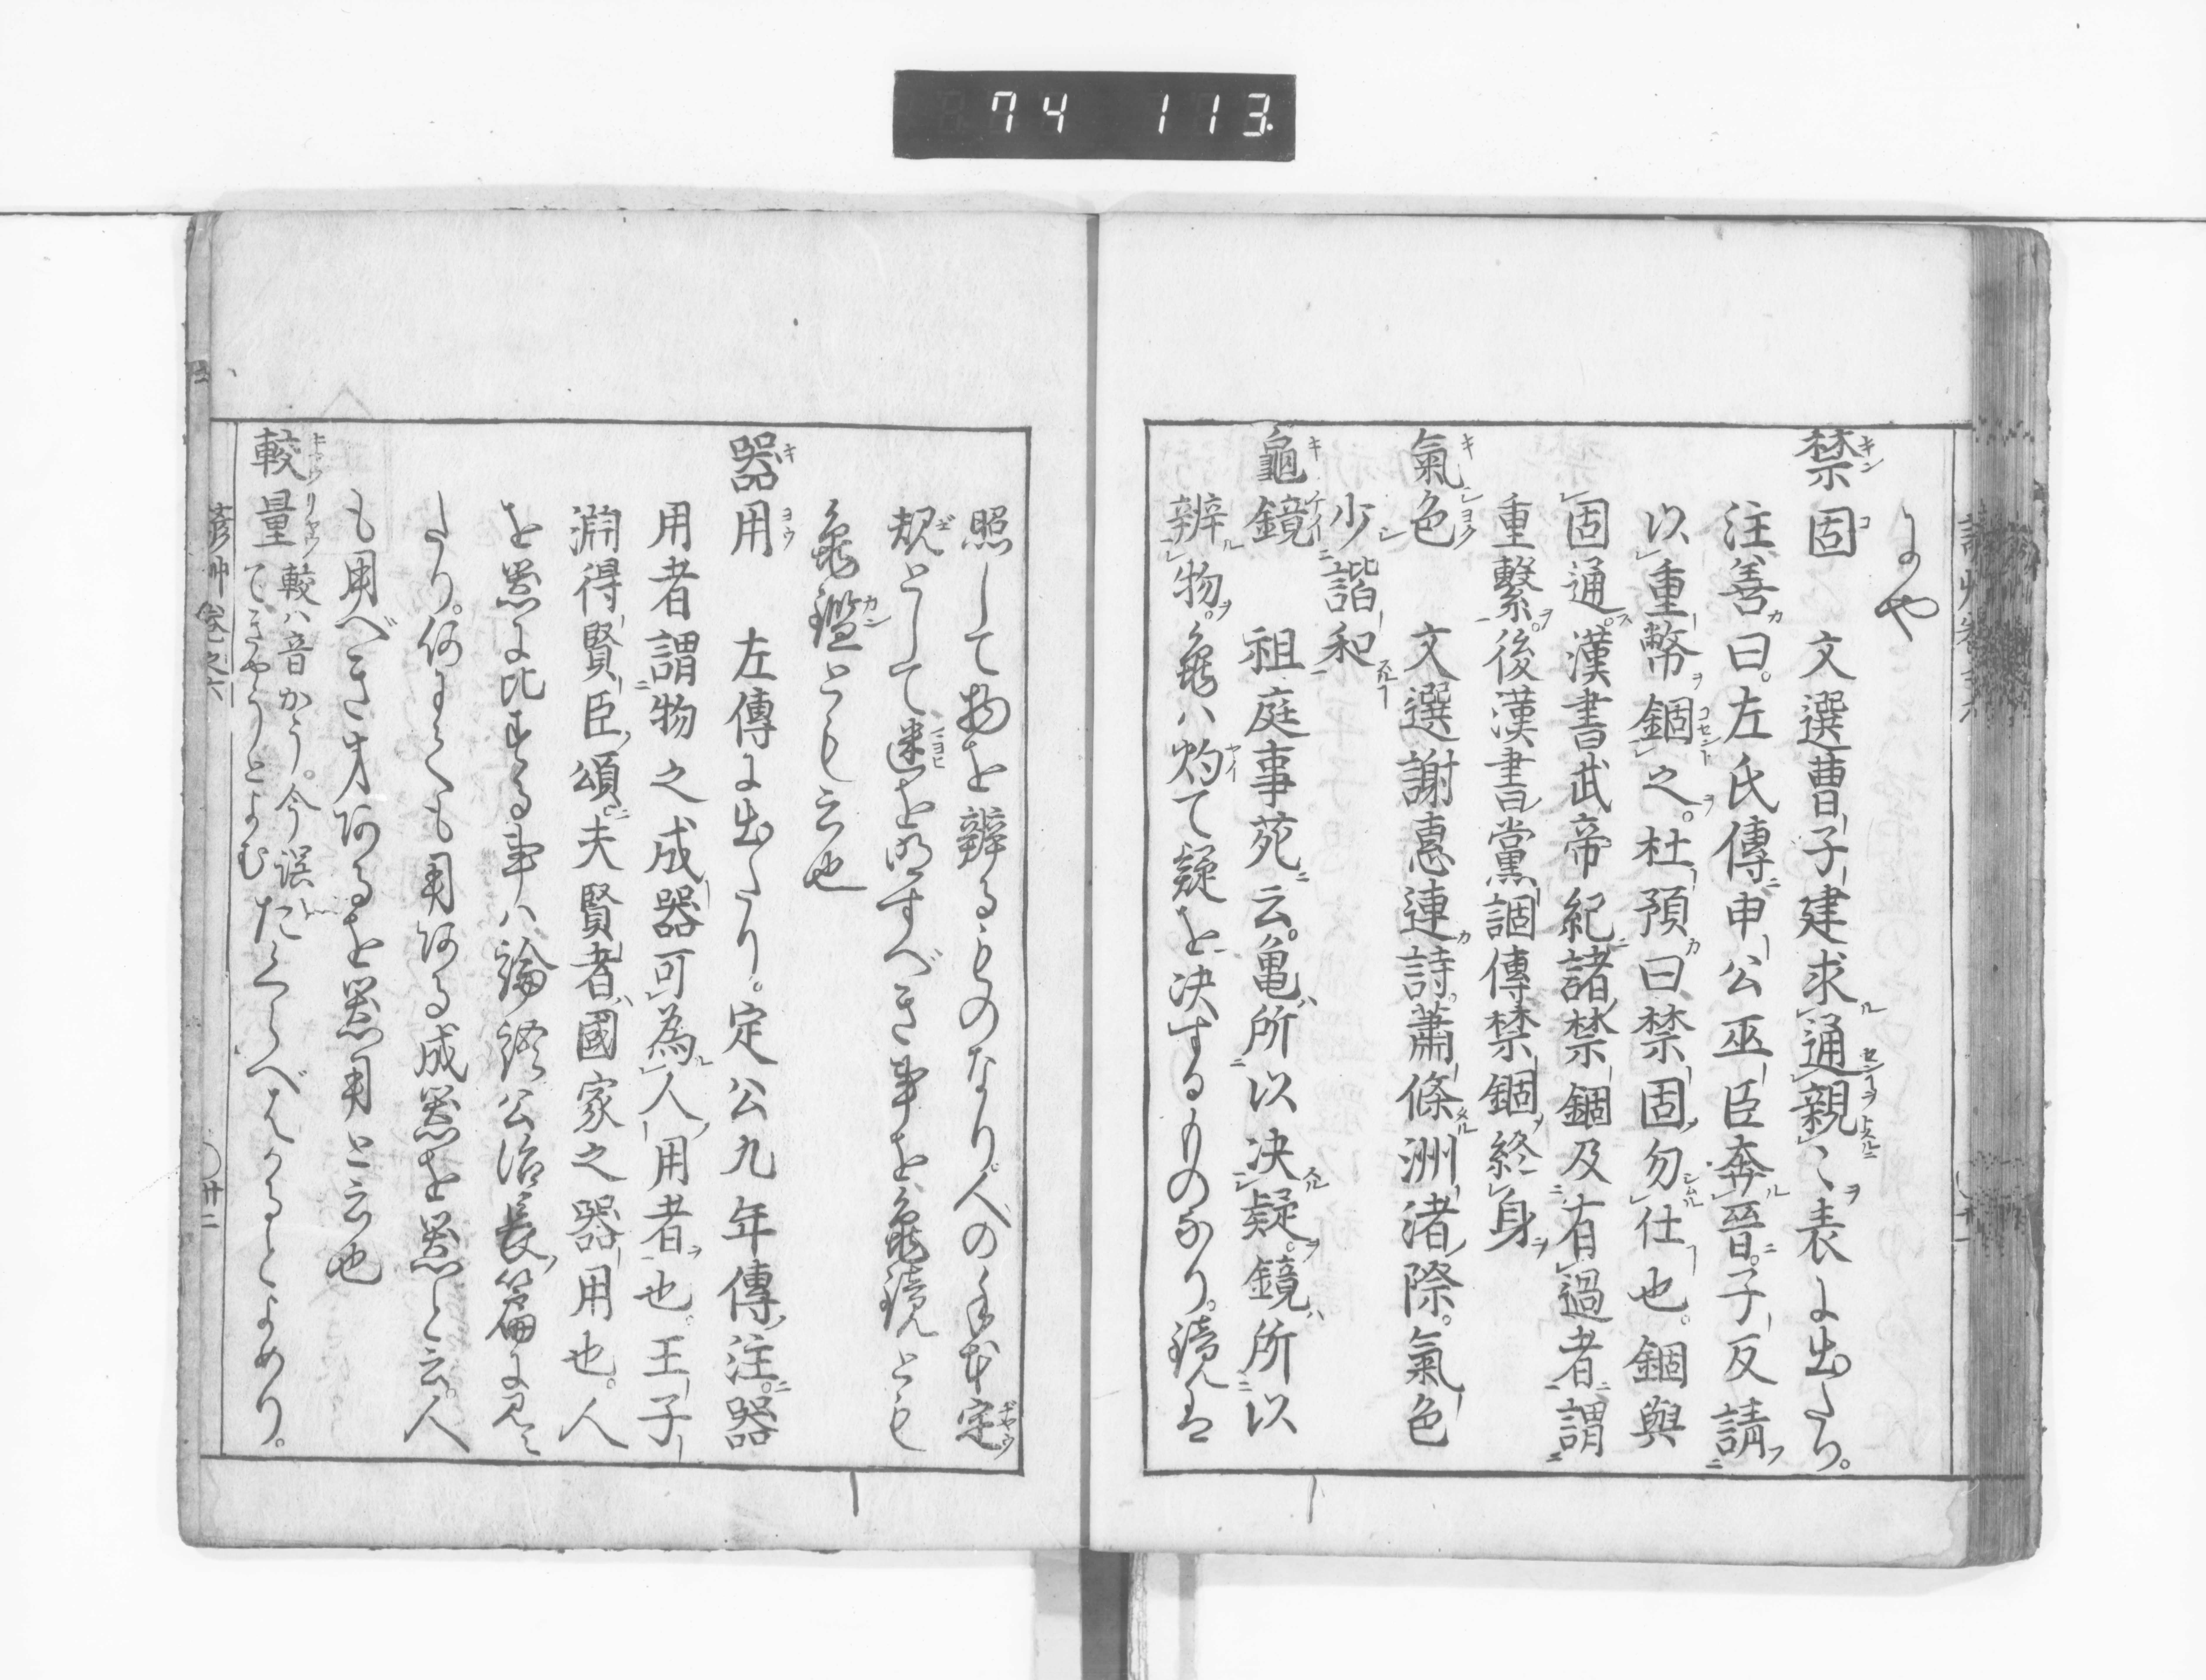 74 113
にや
禁固 文選曹子建求通親〻表に出たり。
注善曰。左氏傳申公巫臣奔晉。子反請
以重幣錮之。杜預曰禁固勿仕也。錮與
固通。漢書武帝紀諸禁錮及有過者謂
重繫。後漢書黨錮傳禁錮終身
氣色 文選謝惠連詩。蕭條洲渚際。氣色
少諧和
龜鏡 祖庭事苑云。亀所以決疑。鏡所以
辨物。龜ハ灼て疑を决するものなり。鏡は
照して物を辨るものなり。人の手本定
規として迷を明すべき事を龜鏡とも
龜鑑とも云也
器用 左傳に出たり。定公九年傳注。器
用者謂物之成器可為人用者也。王子
淵得賢臣頌。夫賢者國家之器用也。人
を器に比する事ハ論語公冶長篇に見え
たり。何にても用ある成器を器と云。人
も用べき才あるを器用と云也
較量 較ハ音かう。今誤てきやうとよむ たくらべはかるとよめり。
彦艸 卷之六 廿二